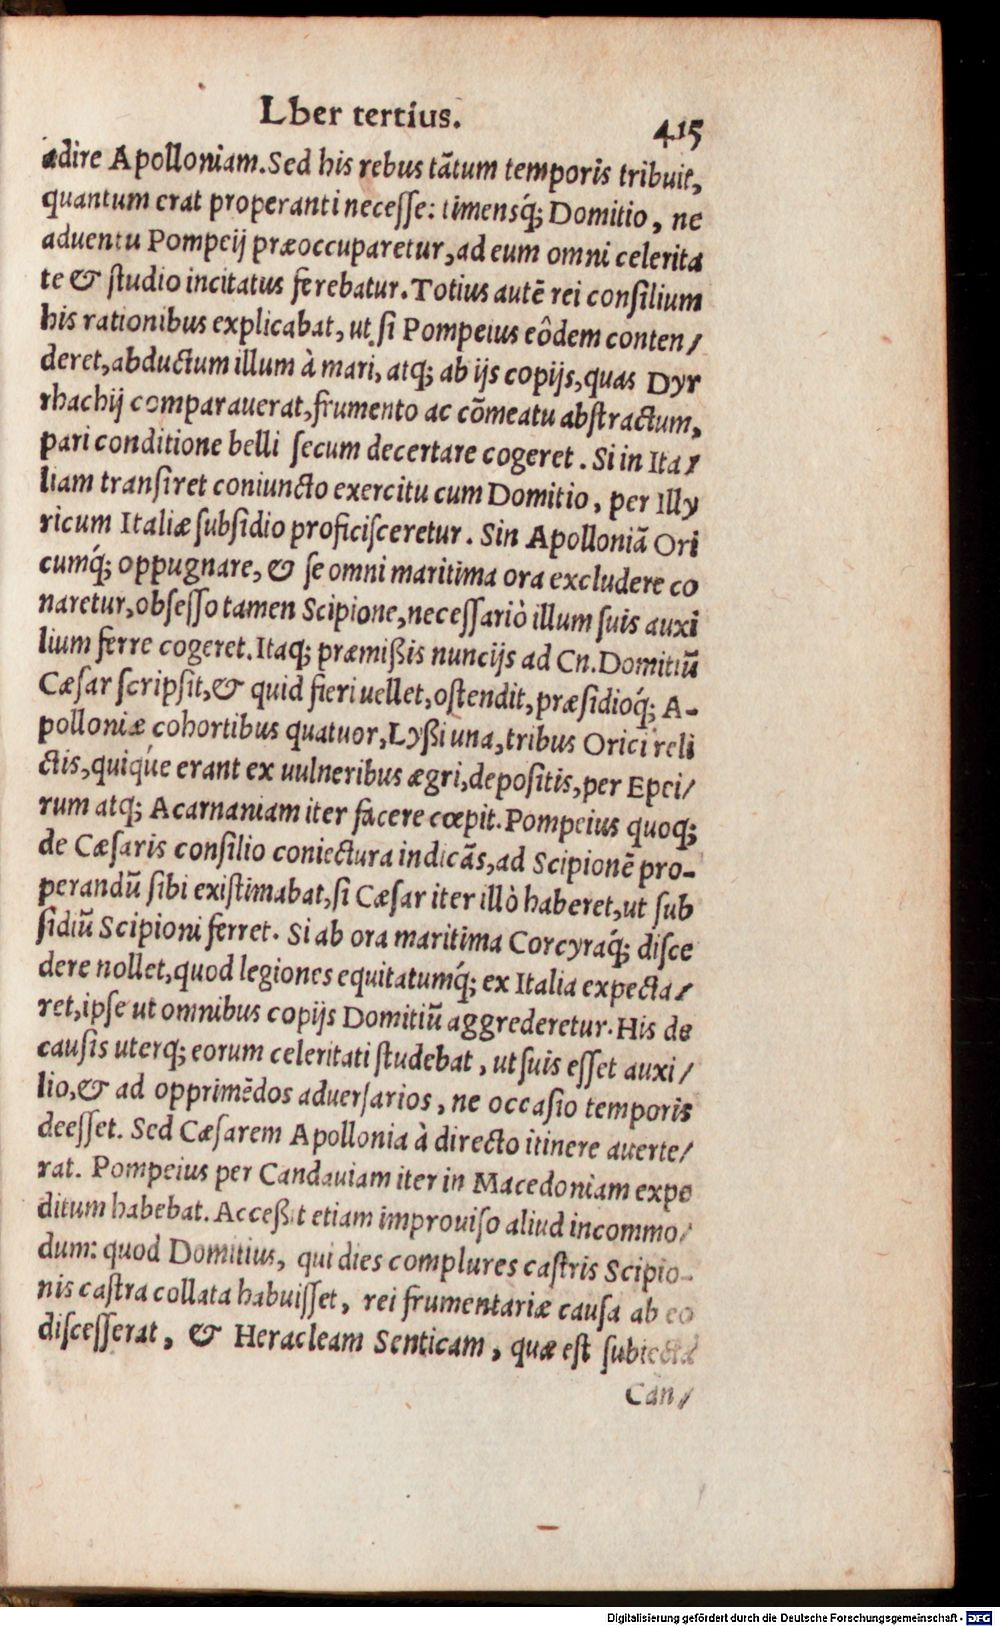 Lber tertius.
415
adire Apolloniam. Sed his rebus tãtum temporis tribuit,
quantum erat properanti necesse: timensq́; Domitio, ne
aduentu Pompeij præoccuparetur, ad eum omni celerita
te & studio incitatus ferebatur. Totius autẽ rei consilium
his rationibus explicabat, ut si Pompeius eôdem conten/
deret, abductum illum à mari, atq; ab ijs copijs, quas Dyr
rhachij comparauerat, frumento ac cõmeatu abstractum,
pari conditione belli secum decertare cogeret. Si in Ita/
liam transiret coniuncto exercitu cum Domitio, per Illy
ricum Italiæ subsidio proficisceretur. Sin Apolloniã Ori
cumq́; oppugnare, & se omni maritima ora excludere co
naretur, obsesso tamen Scipione, necessariò illum suis auxi
lium ferre cogeret. Itaq; præmißis nuncijs ad Cn. Domitiũ
Cæsar scripsit, & quid fieri uellet, ostendit, præsidióq́; A-
polloniæ cohortibus quatuor, Lyßi una, tribus Orici reli
ctis, quiq́ue erant ex uulneribus ægri, depositis, per Epei/
rum atq; Acarnaniam iter facere cœpit. Pompeius quoq;
de Cæsaris consilio coniectura indicãs, ad Scipionẽ pro-
perandũ sibi existimabat, si Cæsar iter illò haberet, ut sub
sidiũ Scipioni ferret. Si ab ora maritima Corcyraq́; disce
dere nollet, quod legiones equitatumq́; ex Italia expecta/
ret, ipse ut omnibus copijs Domitiũ aggrederetur. His de
causis uterq; eorum celeritati studebat, ut suis esset auxi/
lio, & ad opprimẽdos aduersarios, ne occasio temporis
deesset. Sed Cæsarem Apollonia à directo itinere auerte/
rat. Pompeius per Candauiam iter in Macedoniam expe
ditum habebat. Acceßit etiam improuiso aliud incommo/
dum: quod Domitius, qui dies complures castris Scipio-
nis castra collata habuisset, rei frumentariæ causa ab eo
discesserat, & Heracleam Senticam, quæ est subiecta
Can/
Digitalisierung gefördert durch die Deutsche Forschungsgemeinschaft - DFG